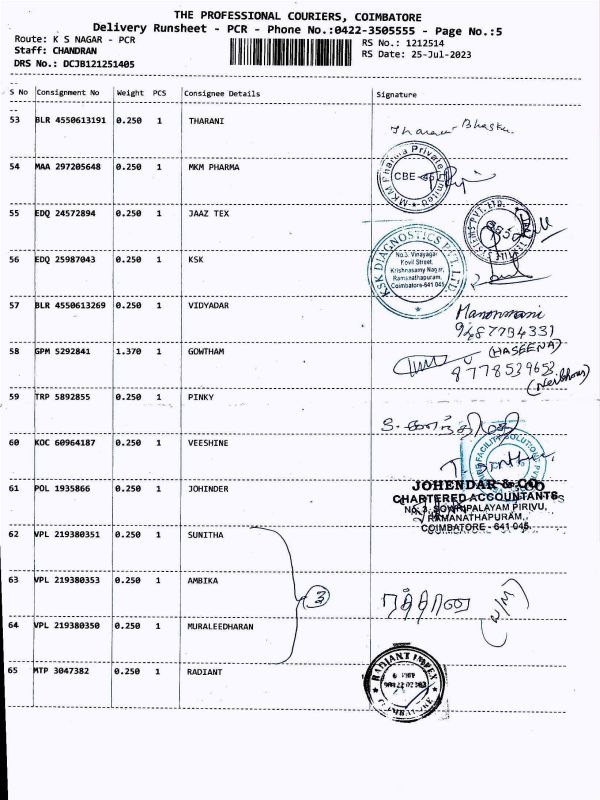 THE PROFESSIONAL COURIERS, COIMBATORE
Delivery Runsheet - PCR - Phone No.:0422-3505555 - Page No.:5
Route: K S NAGAR - PCR
RS No.: 1212514
Staff: CHANDRAN
RS Date: 25-Jul-2023
DRS No.: DCJB121251405
S No Consignment No Weight PCS Consignee Details Signature
53 BLR 4550613191 0.250 1 THARANI
Tharani Bhaskar
54 MAA 297205648 0.250 1 MKM PHARMA
MKM Pharma Private Limited
CBE
55 EDQ 24572894 0.250 1 JAAZ TEX
56 EDQ 25987043 0.250 1 KSK
KSK DIAGNOSTICS PVT. LTD
No.3, Vinayagar
Kovil Street,
Krishnasamy Nagar,
Ramanathapuram,
Coimbatore-641 045
57 BLR 4550613269 0.250 1 VIDYADAR
Manonmani
9487794331
58 GPM 5292841 1.370 1 GOWTHAM
(HASEENA)
8778539653
(Neibhour)
59 TRP 5892855 0.250 1 PINKY
60 KOC 60964187 0.250 1 VEESHINE
FACILITY SOLUTIONS
61 POL 1935866 0.250 1 JOHINDER
JOHENDAR & CO
CHARTERED ACCOUNTANTS
NO.3, SOWRIPALAYAM PIRIVU,
RAMANATHAPURAM,
COIMBATORE - 641 045.
62 VPL 219380351 0.250 1 SUNITHA
63 VPL 219380353 0.250 1 AMBIKA
3
(N/M)
64 VPL 219380350 0.250 1 MURALEEDHARAN
65 MTP 3047382 0.250 1 RADIANT
RADIANT IMPEX
COIMBATORE